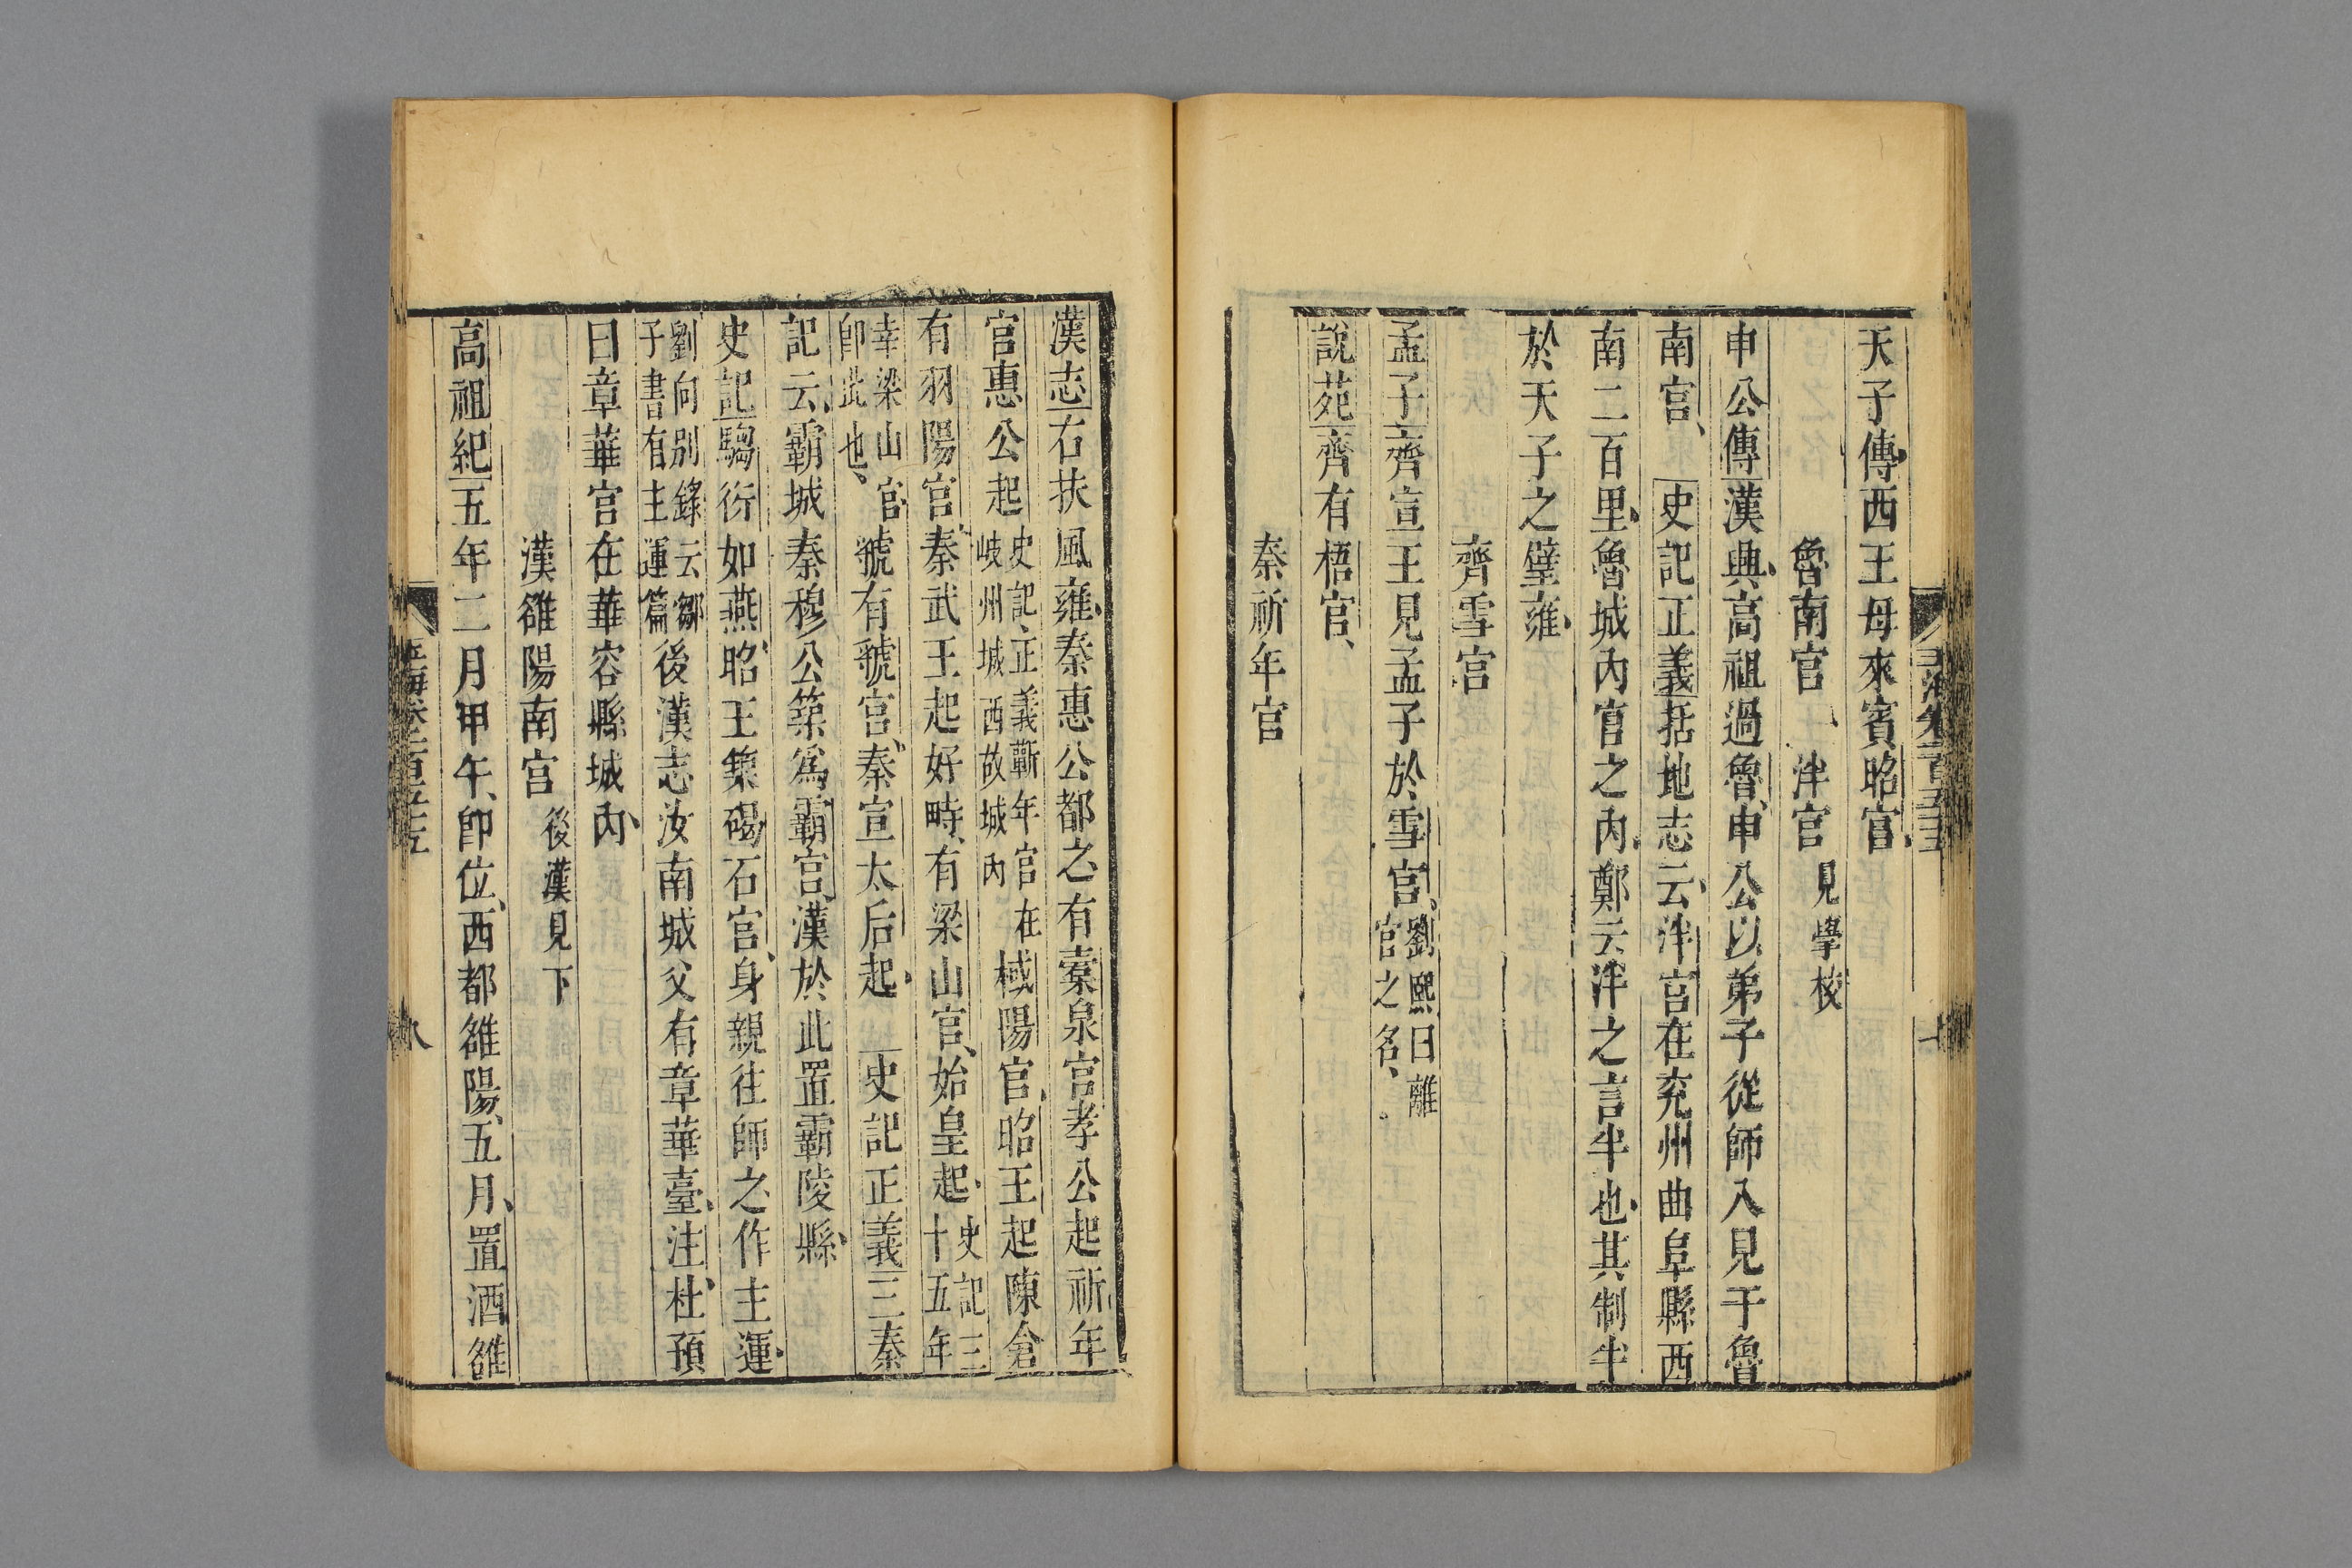 天子傳西王母來賓昭宮
魯南宮 泮宮見學校
申公傳漢興高祖過魯申公以弟子從師入見于魯
南宮 史記正義括地志云泮宮在兖州曲阜縣西
南二百里魯城內宮之內鄭云泮之言半也其制半
於天子之璧雍
齊雪宮
孟子齊宣王見孟子於雪宮劉熙曰離宮之名
說苑齊有梧宮
秦祈年宮
漢志右扶風雍秦惠公都之有橐泉宮孝公起祈年
宮惠公起史記正義蘄年宮在岐州城西故城內棫陽宮昭王起陳倉
有羽陽宮秦武王起好畤有梁山宮始皇起史記三十五年
幸梁山宮卽此也虢有虢宮秦宣太后起 史記正義三秦
記云霸城秦穆公築爲霸宮漢於此置霸陵縣
史記騶衍如燕昭王築碣石宮身親往師之作主運
劉向別錄云鄒子書有主運篇後漢志汝南城父有章華臺注杜預
曰章華宮在華容縣城內
漢雒陽南宮後漢見下
高祖紀五年二月甲午卽位西都雒陽五月置酒雒